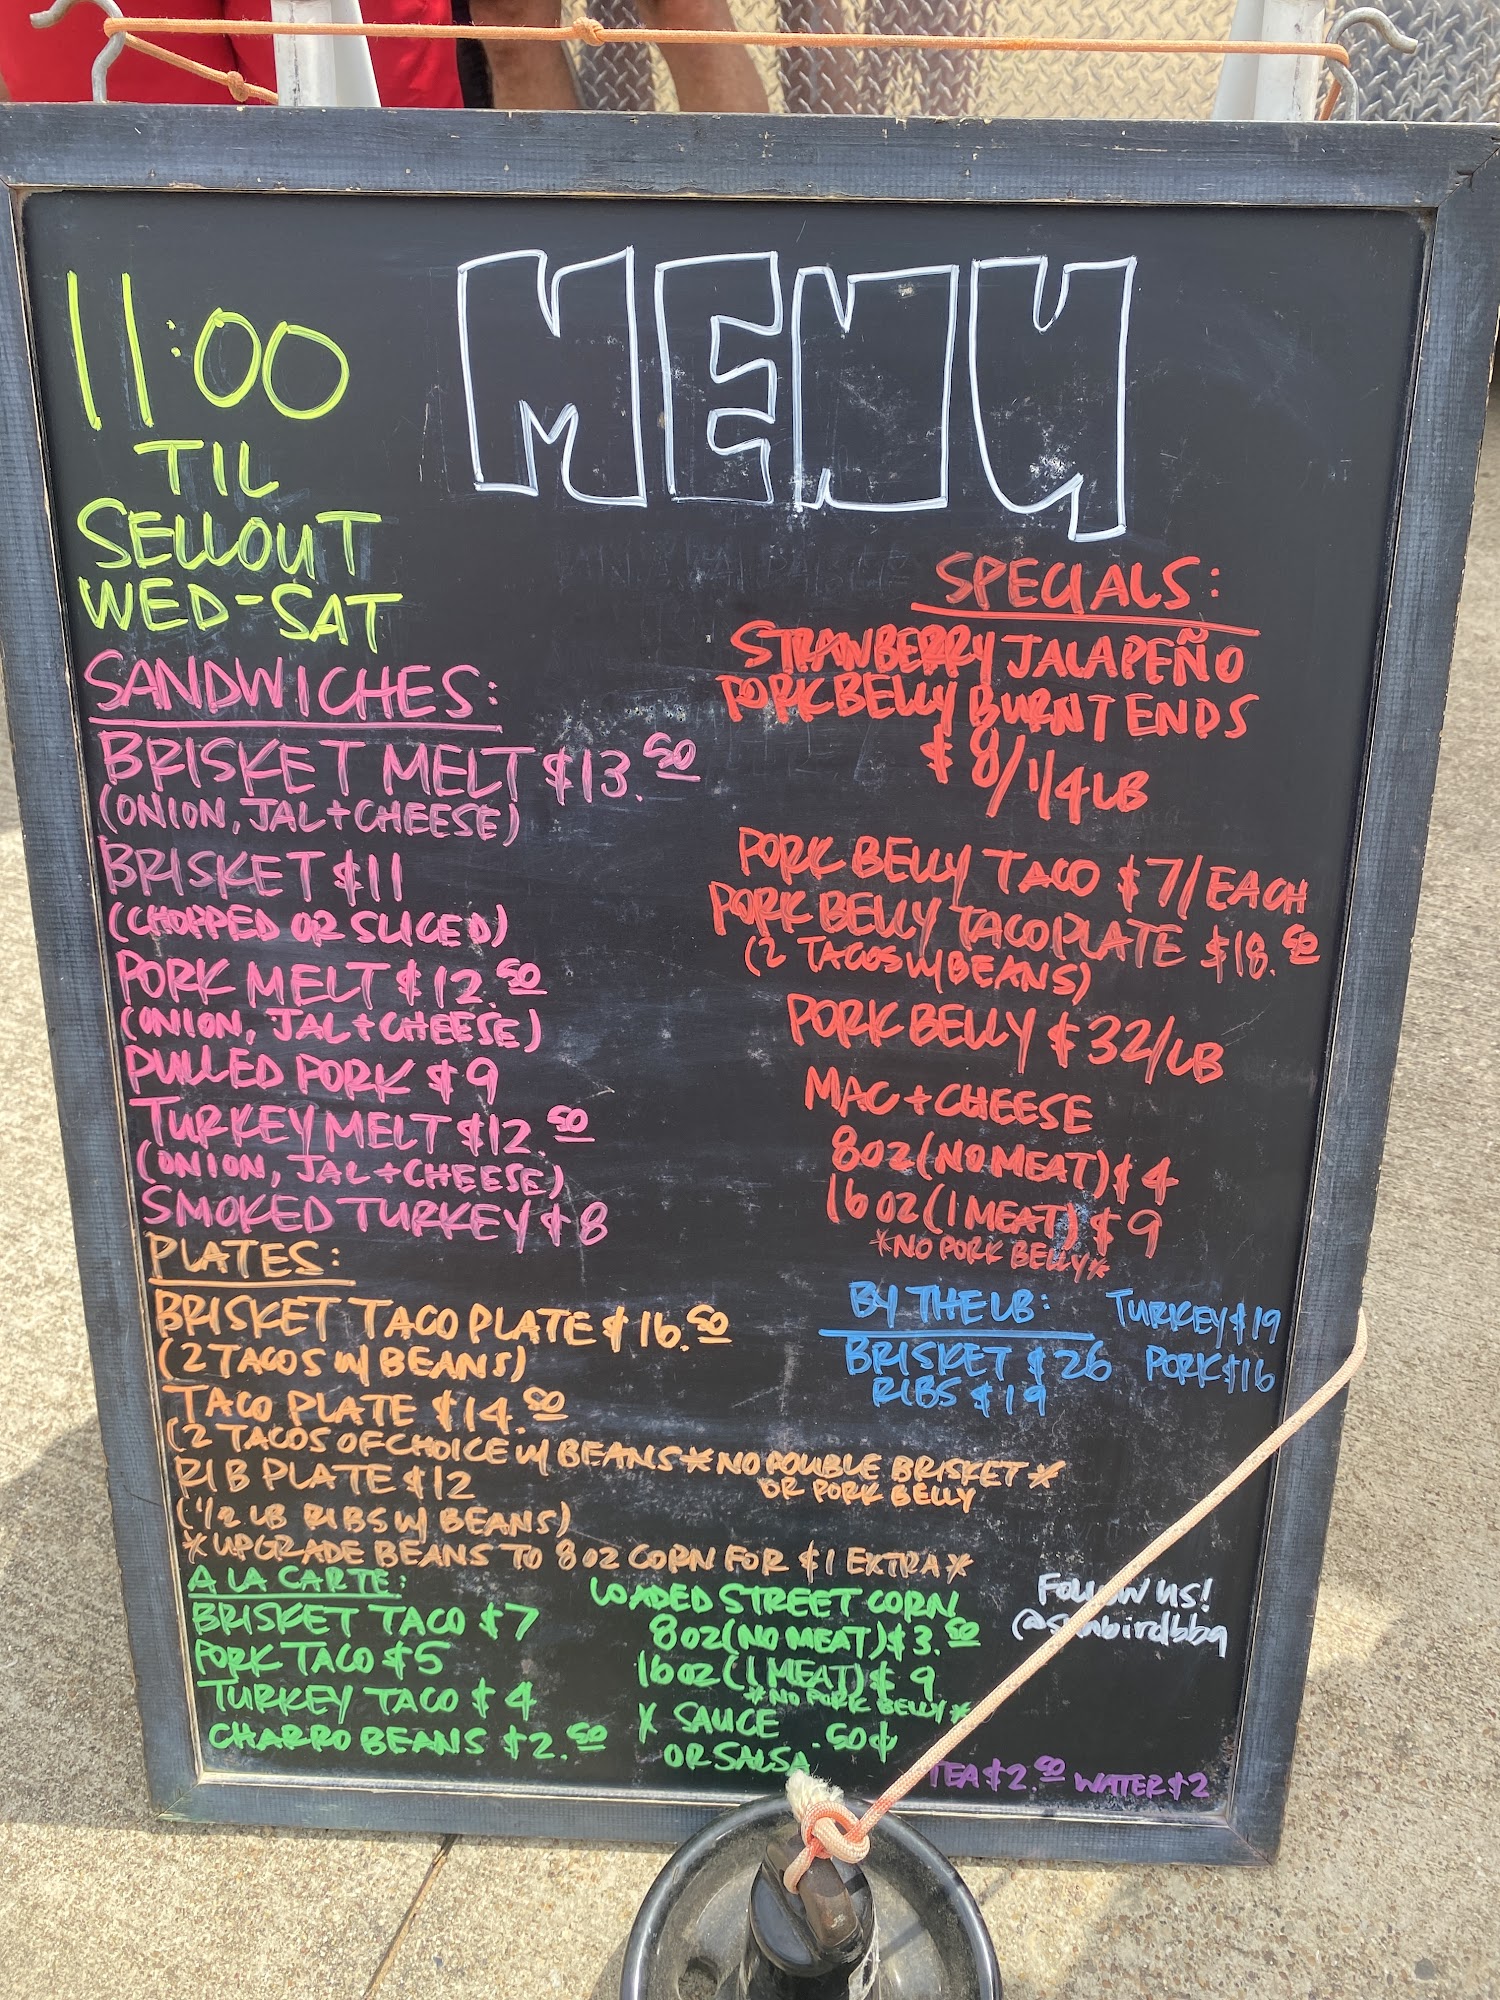 MENU
11:00
TIL
SELLOUT
WED-SAT
SANDWICHES:
BRISKET MELT $13.50
(ONION, JAL + CHEESE)
BRISKET $11
(CHOPPED OR SLICED)
PORK MELT $12.50
(ONION, JAL + CHEESE)
PULLED PORK $9
TURKEY MELT $12.50
(ONION, JAL + CHEESE)
SMOKED TURKEY $8
PLATES:
BRISKET TACO PLATE $16.50
(2 TACOS W/ BEANS)
TACO PLATE $14.50
(2 TACOS OF CHOICE W/ BEANS *NO DOUBLE BRISKET*
OR PORK BELLY
RIB PLATE $12
(1/2 LB RIBS W/ BEANS)
*UPGRADE BEANS TO 8 OZ CORN FOR $1 EXTRA*
A LA CARTE:
BRISKET TACO $7
PORK TACO $5
TURKEY TACO $4
CHARRO BEANS $2.50
LOADED STREET CORN
8 OZ (NO MEAT) $3.50
16 OZ (1 MEAT) $9
*NO PORK BELLY*
* SAUCE .50¢
OR SALSA
SPECIALS:
STRAWBERRY JALAPEÑO
PORK BELLY BURNT ENDS
$8/1/4 LB
PORK BELLY TACO $7/EACH
PORK BELLY TACO PLATE $18.50
(2 TACOS W/ BEANS)
PORK BELLY $32/LB
MAC + CHEESE
8 OZ (NO MEAT) $4
16 OZ (1 MEAT) $9
*NO PORK BELLY*
BY THE LB: TURKEY $19
BRISKET $26 PORK $16
RIBS $19
FOLLOW US!
@sunbirdbbq
TEA $2.50 WATER $2